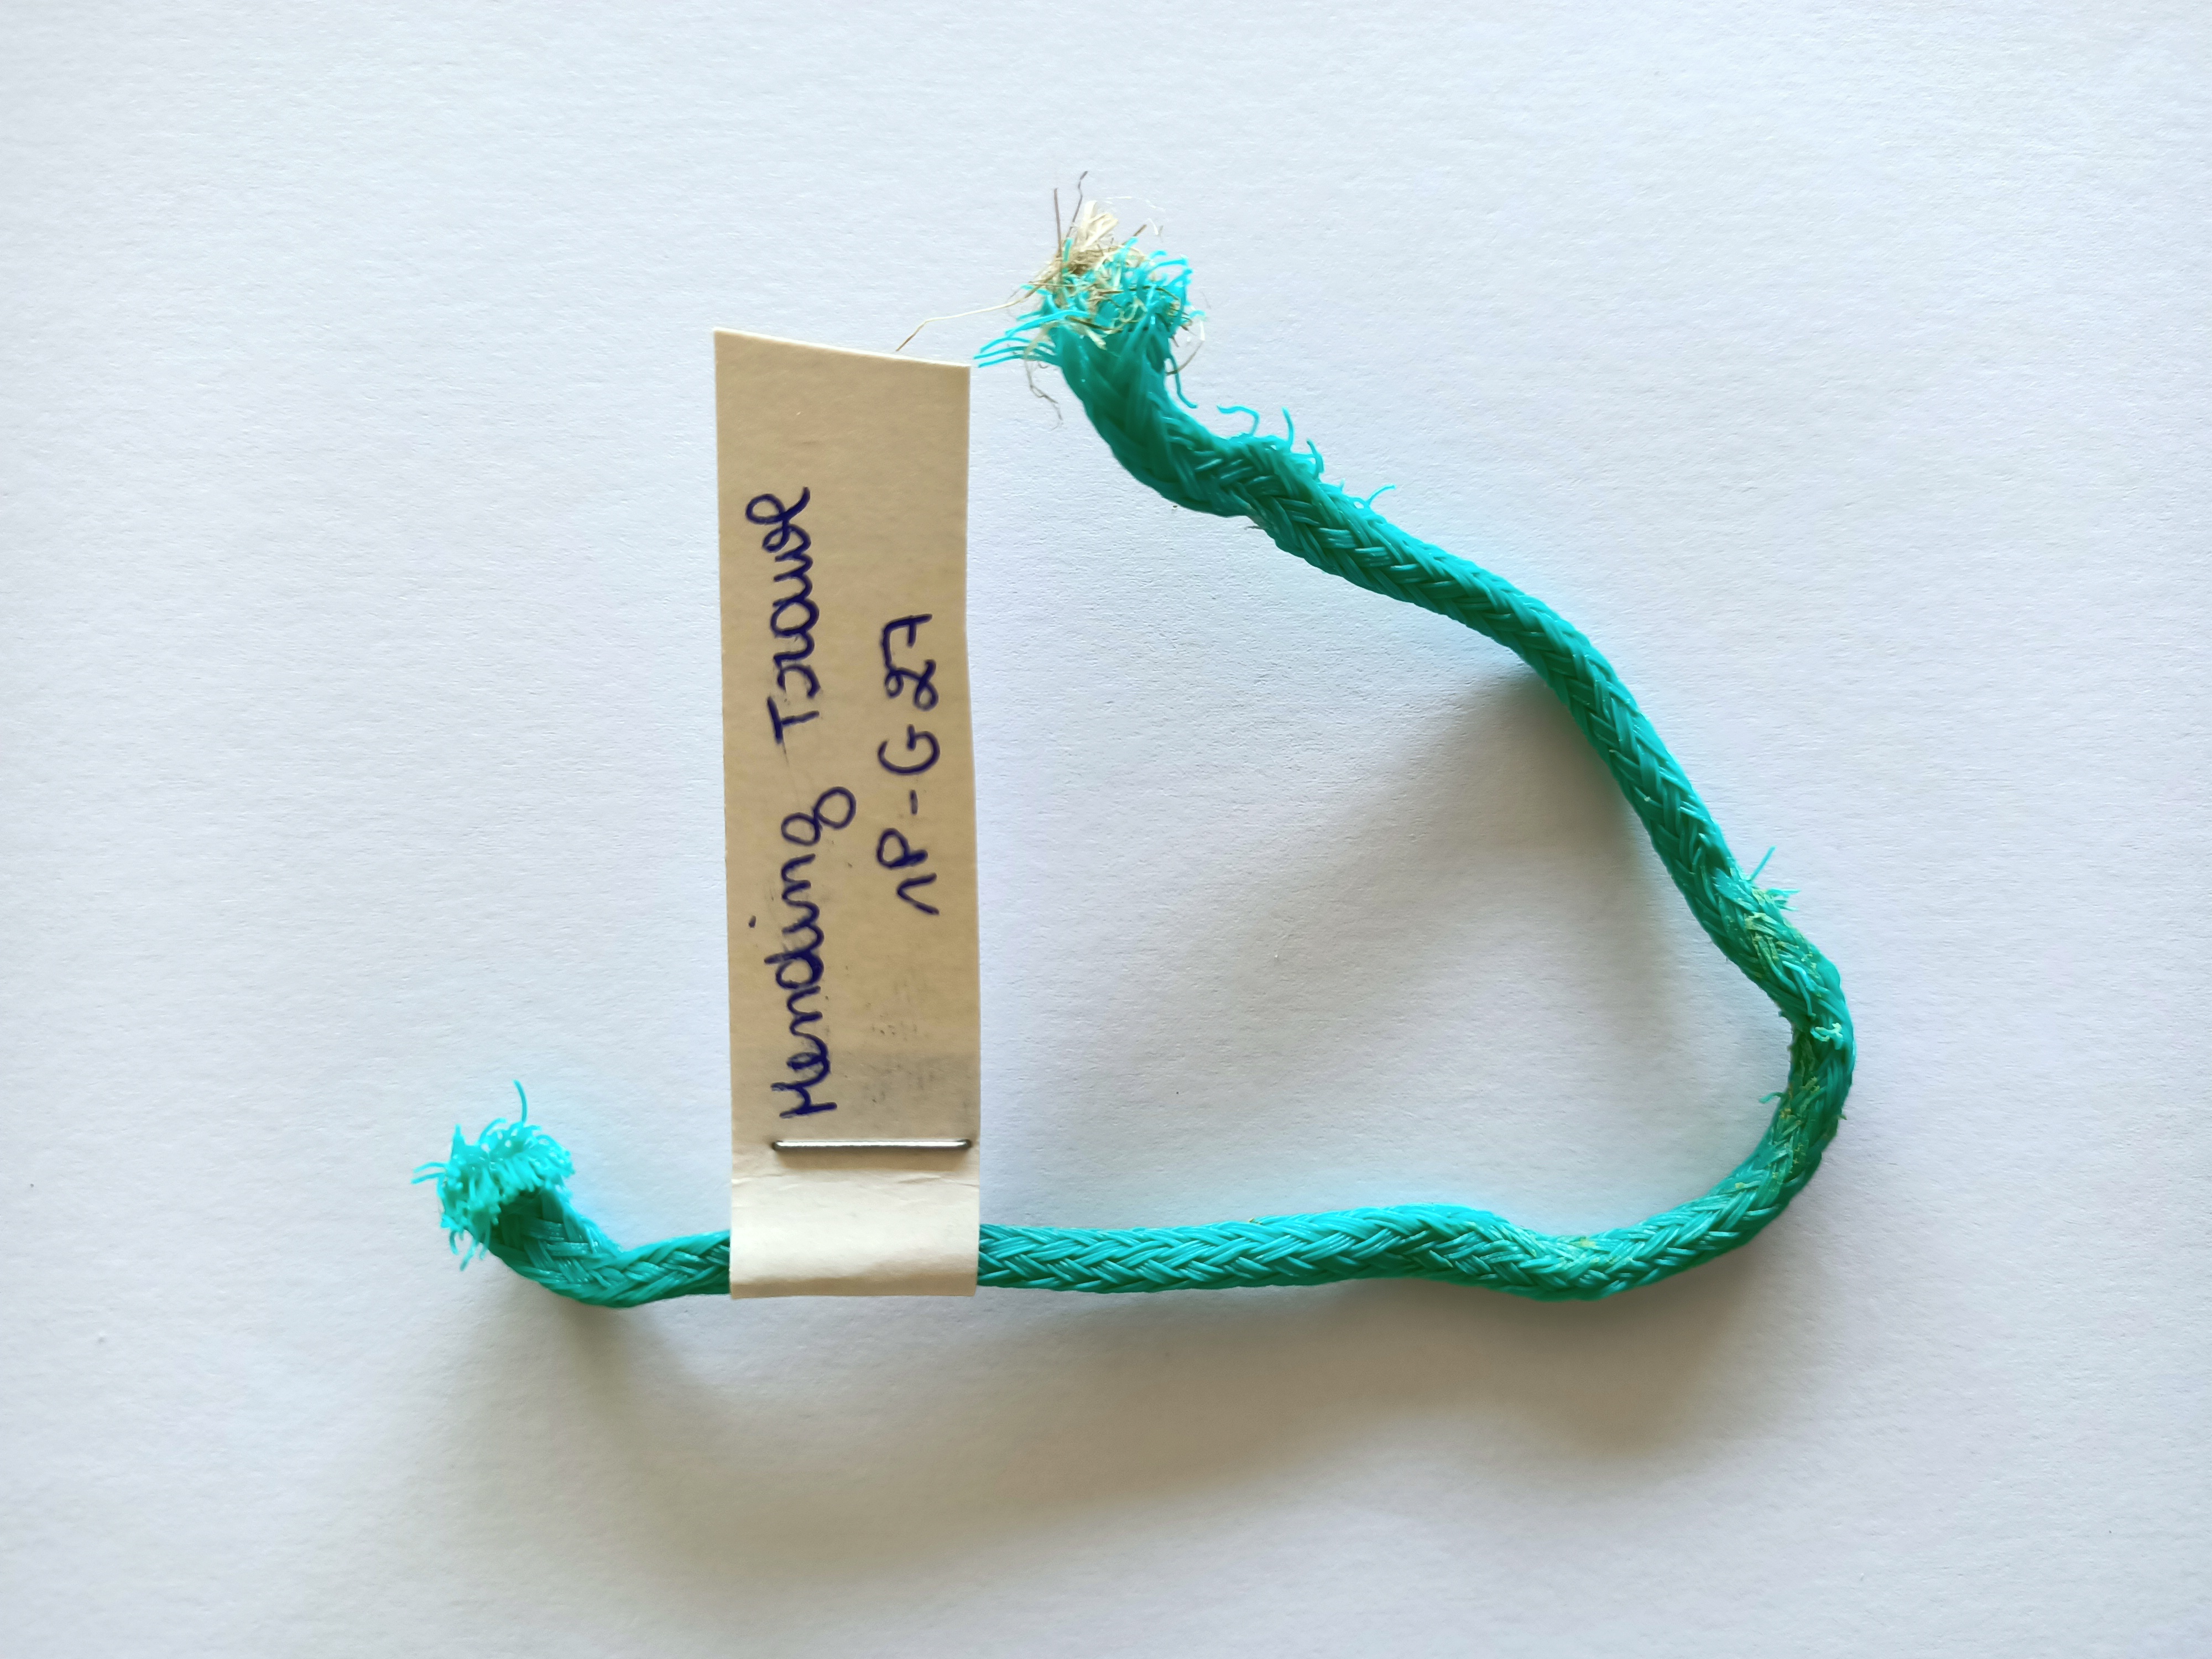 Mending Trawl
1P-G27